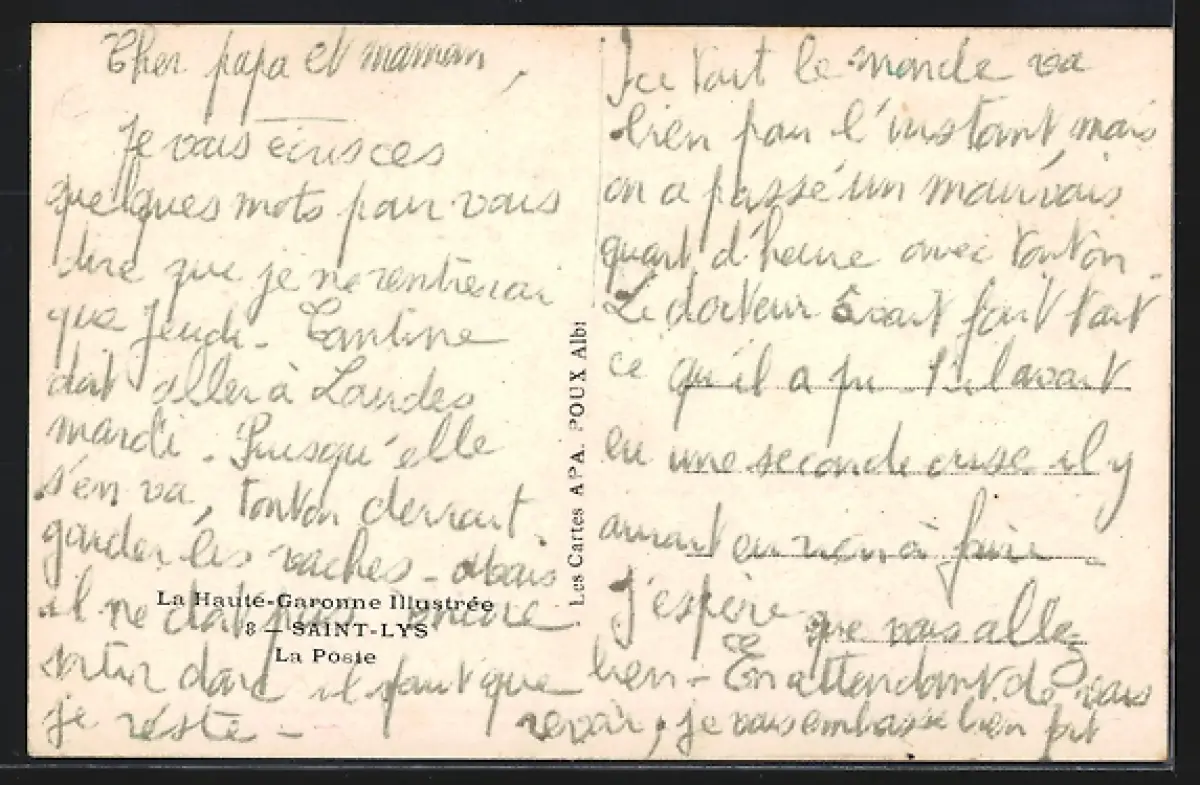 Cher papa et maman,
Je vous écris ces
quelques mots pour vous
dire que je ne rentrerai
que Jeudi. Tantine
doit aller à Lourdes
mardi. Puisqu'elle
s'en va, tonton devrait
garder les vaches - Mais
il ne doit pas encore
sortir donc il faut que
je réste -
La Haute-Garonne Illustrée
8 — SAINT-LYS
La Poste
Les Cartes APA. POUX Albi
Ici tout le monde va
bien pour l'instant, mais
on a passé un mauvais
quart d'heure avec tonton.
Le docteur avait fait tout
ce qu'il a pu. S'il avait
eu une seconde crise il y
aurait eu rien à faire.
J'espère que vous allez
bien - En attendant de vous
revoir, je vous embrasse bien fort